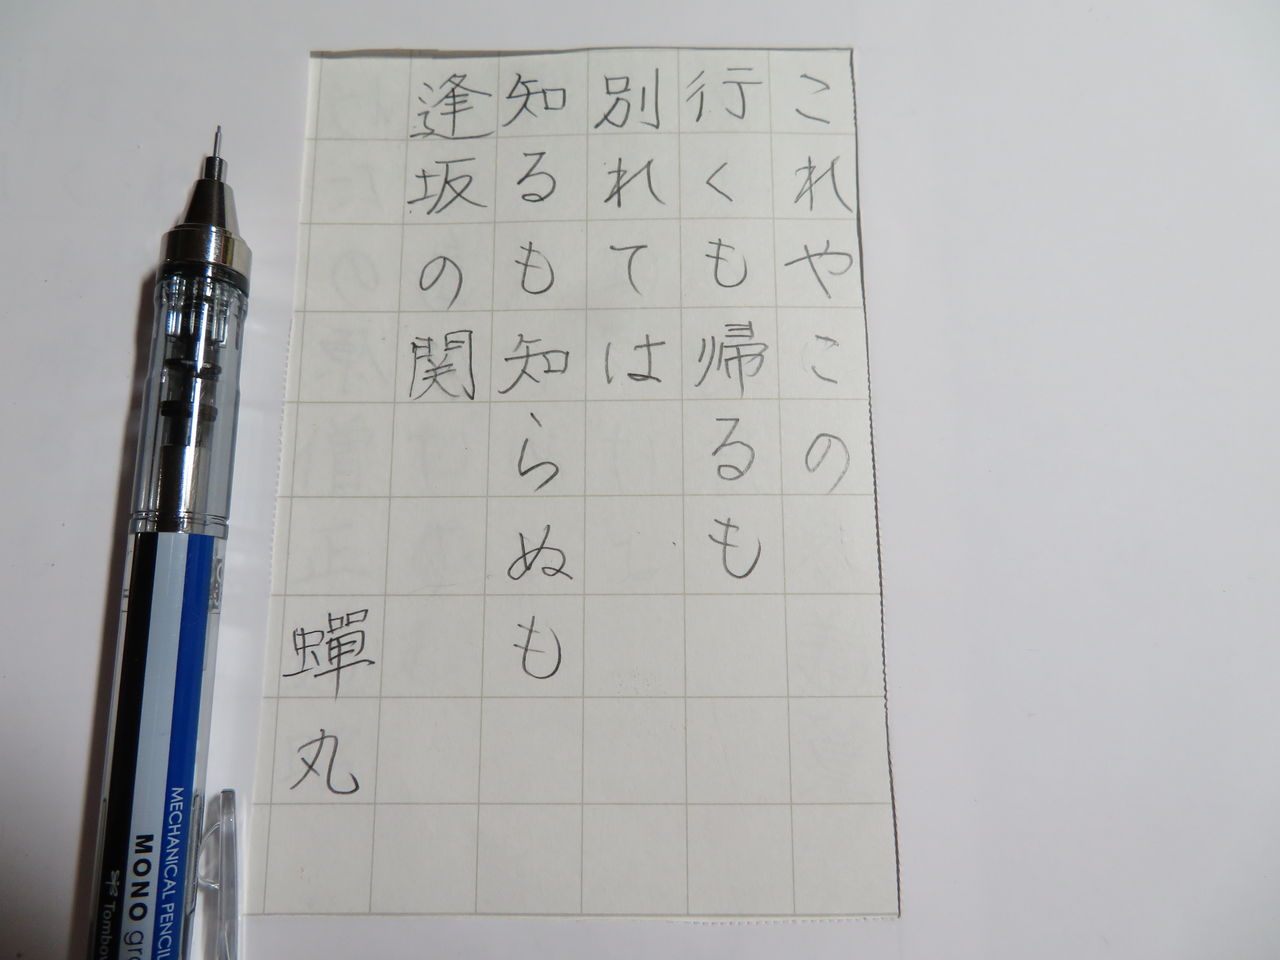 これやこの
行くも帰るも
別れては
知るも知らぬも
逢坂の関
蟬丸
MECHANICAL PENCIL
MONO gra
Tombow